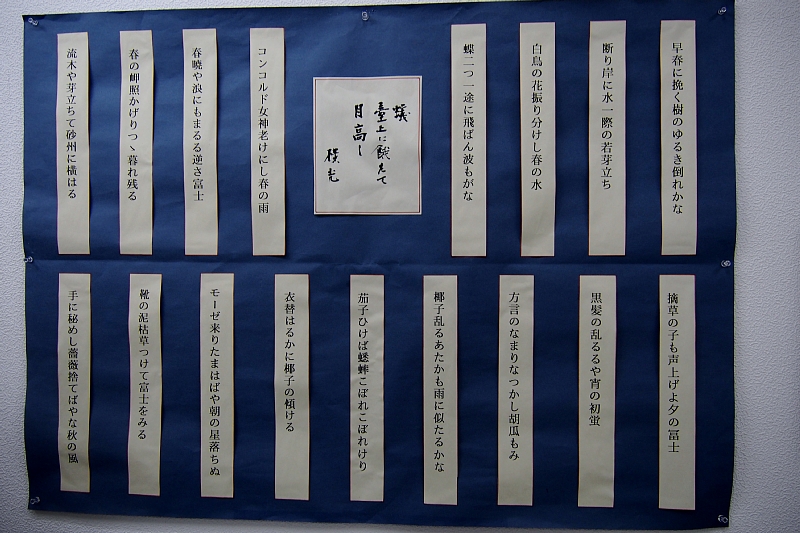 早春に挽く樹のゆるき倒れかな
断り岸に水一際の若芽立ち
白鳥の花振り分けし春の水
蝶二つ一途に飛ばん波もがな
蟻
臺上に餓えて
月高し
コンコルド女神老けにし春の雨
春暁や浪にもまるる逆さ富士
春の岬照かげりつゝ暮れ残る
流木や芽立ちて砂州に横はる
摘草の子も声上げよ夕の冨士
黒髪の乱るるや宵の初蛍
方言のなまりなつかし胡瓜もみ
椰子乱るあたかも雨に似たるかな
茄子ひけば蟋蟀こぼれこぼれけり
衣替はるかに椰子の傾ける
モーゼ来りたまはばや朝の星落ちぬ
靴の泥枯草つけて富士をみる
手に秘めし薔薇捨てばやな秋の風